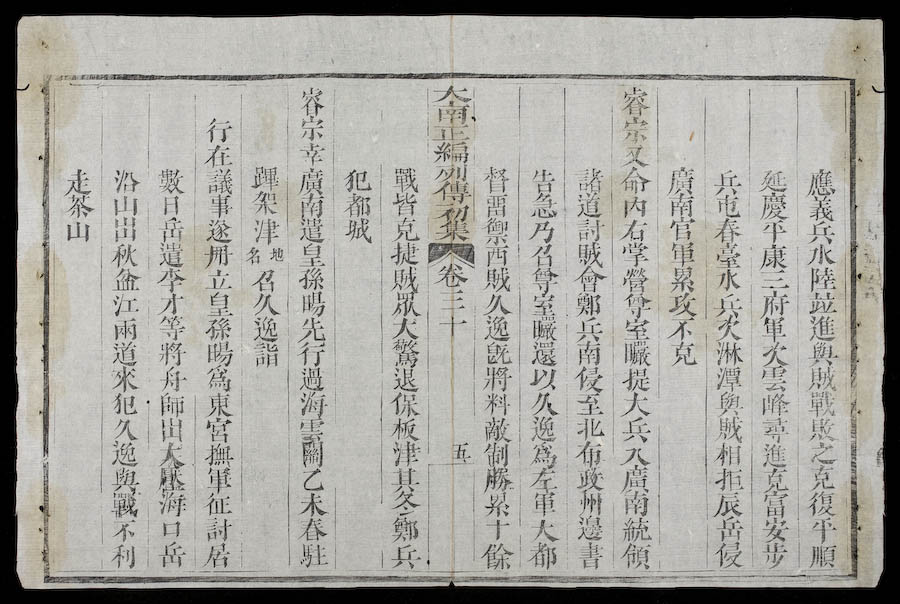 應義兵水陸竝進與賊戰敗之克復平順
延慶平康三府軍次雲峰尋進克富安步
兵屯春臺水兵次淋潭與賊相拒辰岳侵
廣南官軍累攻不克
睿宗又命內右掌營尊室㬻提大兵入廣南統領
諸道討賊會鄭兵南侵至北布政州邊書
告急乃召尊室㬻還以久逸爲左軍大都
督雷禦西賊久逸旣將料敵制勝累十餘
大南正編列傳初集 卷三十 五
戰皆克捷賊眾大驚退保板津其冬鄭兵
犯都城
睿宗幸廣南遣皇孫暘先行過海雲關乙未春駐
蹕架津地名召久逸詣
行在議事遂冊立皇孫暘爲東宮撫軍征討居
數日岳遣李才等將舟師出大壓海口岳
沿山出秋盆江兩道來犯久逸與戰不利
走茶山